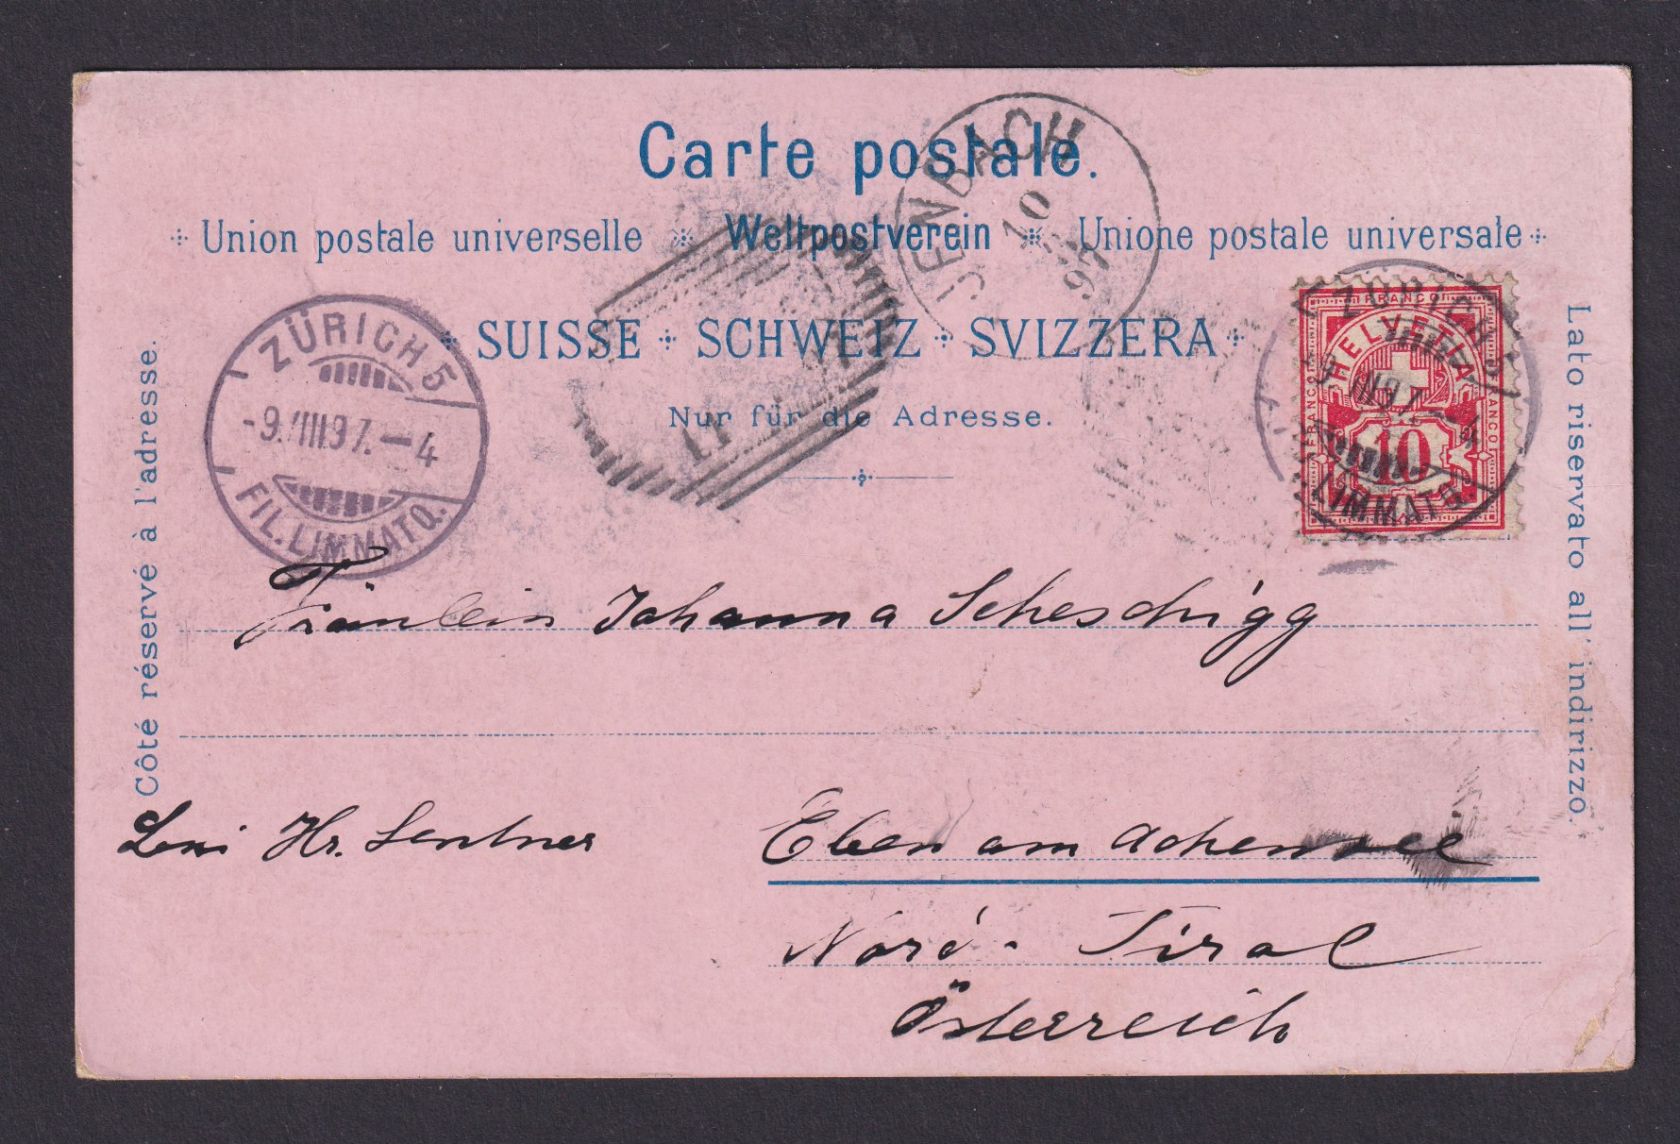 Carte postale.
Union postale universelle Weltpostverein Unione postale universale
SUISSE SCHWEIZ SVIZZERA
Nur für die Adresse.
Côté réservé à l'adresse.
Lato riservato all' indirizzo.
JENBACH
10
97
ZÜRICH 5
-9.VIII.97.-4
FIL. LIMMATQ.
FRANCO
HELVETIA
FRANCO
FRANCO
10
ZÜRICH 5
-9.VIII.97.-4
LIMMATQ.
11
Fräulein Johanna Scheschigg
Hr. Sentner
Eben am Achensee
Nord-Tirol
Österreich